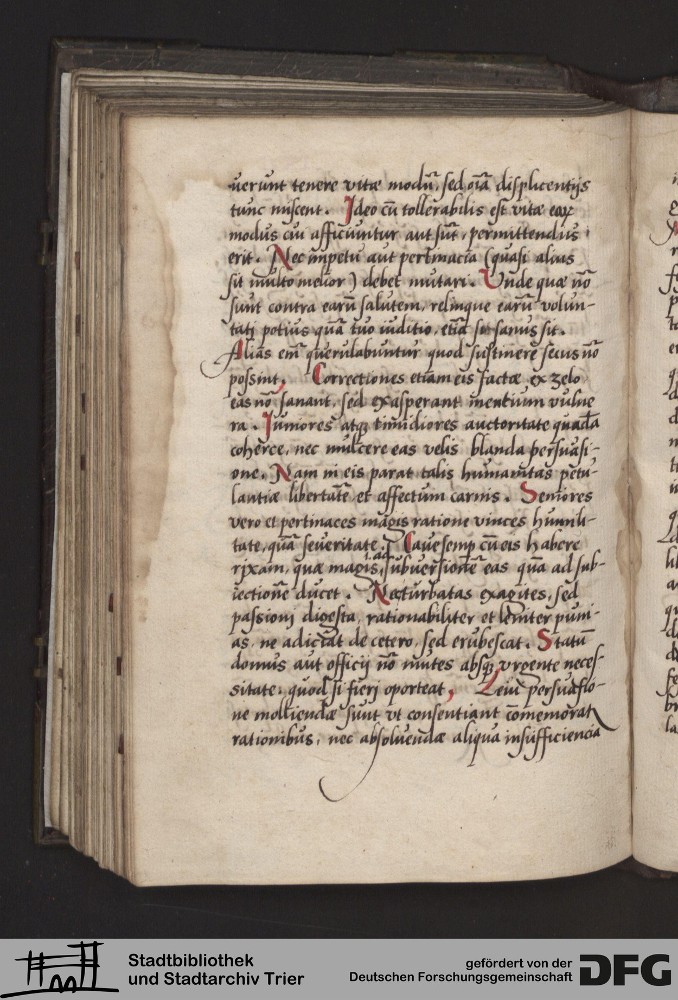 uerunt tenere vitæ modũ, sed oĩa displicentijs
tunc nascent. Ideo cũ tollerabilis est vitæ eaꝝ
modus cui afficiuntur aut sũt, permittendus
erit. Nec impetu aut pertinacia (quasi alius
sit multo melior) debet mutari. Unde quæ nõ
sunt contra earũ salutem, relinque earũ volun-
tati potius quã tuo iuditio, etiã si sanus sit.
Alias em̃ querulabuntur quod sustinere secus nõ
possint. Correctiones etiam eis factæ ex zelo
eas nõ sanant, sed exasperant mentium vulne
ra. Iuniores atqȝ timidiores auctoritate quadã
coherce, nec mulcere eas velis blanda persuasi-
one. Nam in eis parat talis humanitas petu-
lantiæ libertatẽ et affectum carnis. Seniores
vero et pertinaces magis ratione vinces humili-
tate, quã seueritate. Caue semp cũ eis habere
rixam, quæ magis ad subuersionẽ eas quã ad sub-
iectionẽ ducet. Nec turbatas exagites, sed
passioni digesta, rationabiliter et leniter puni-
as, ne addictat de cetero, sed erubescat. Statũ
domus aut officij nõ mutes absqȝ vrgente neces-
sitate, quod si fieri oporteat, Leui persuasio-
ne molliendæ sunt vt consentiant cõmemorat
rationibus, nec absoluendæ aliqua insufficiencia
Stadtbibliothek
und Stadtarchiv Trier
gefördert von der
Deutschen Forschungsgemeinschaft
DFG